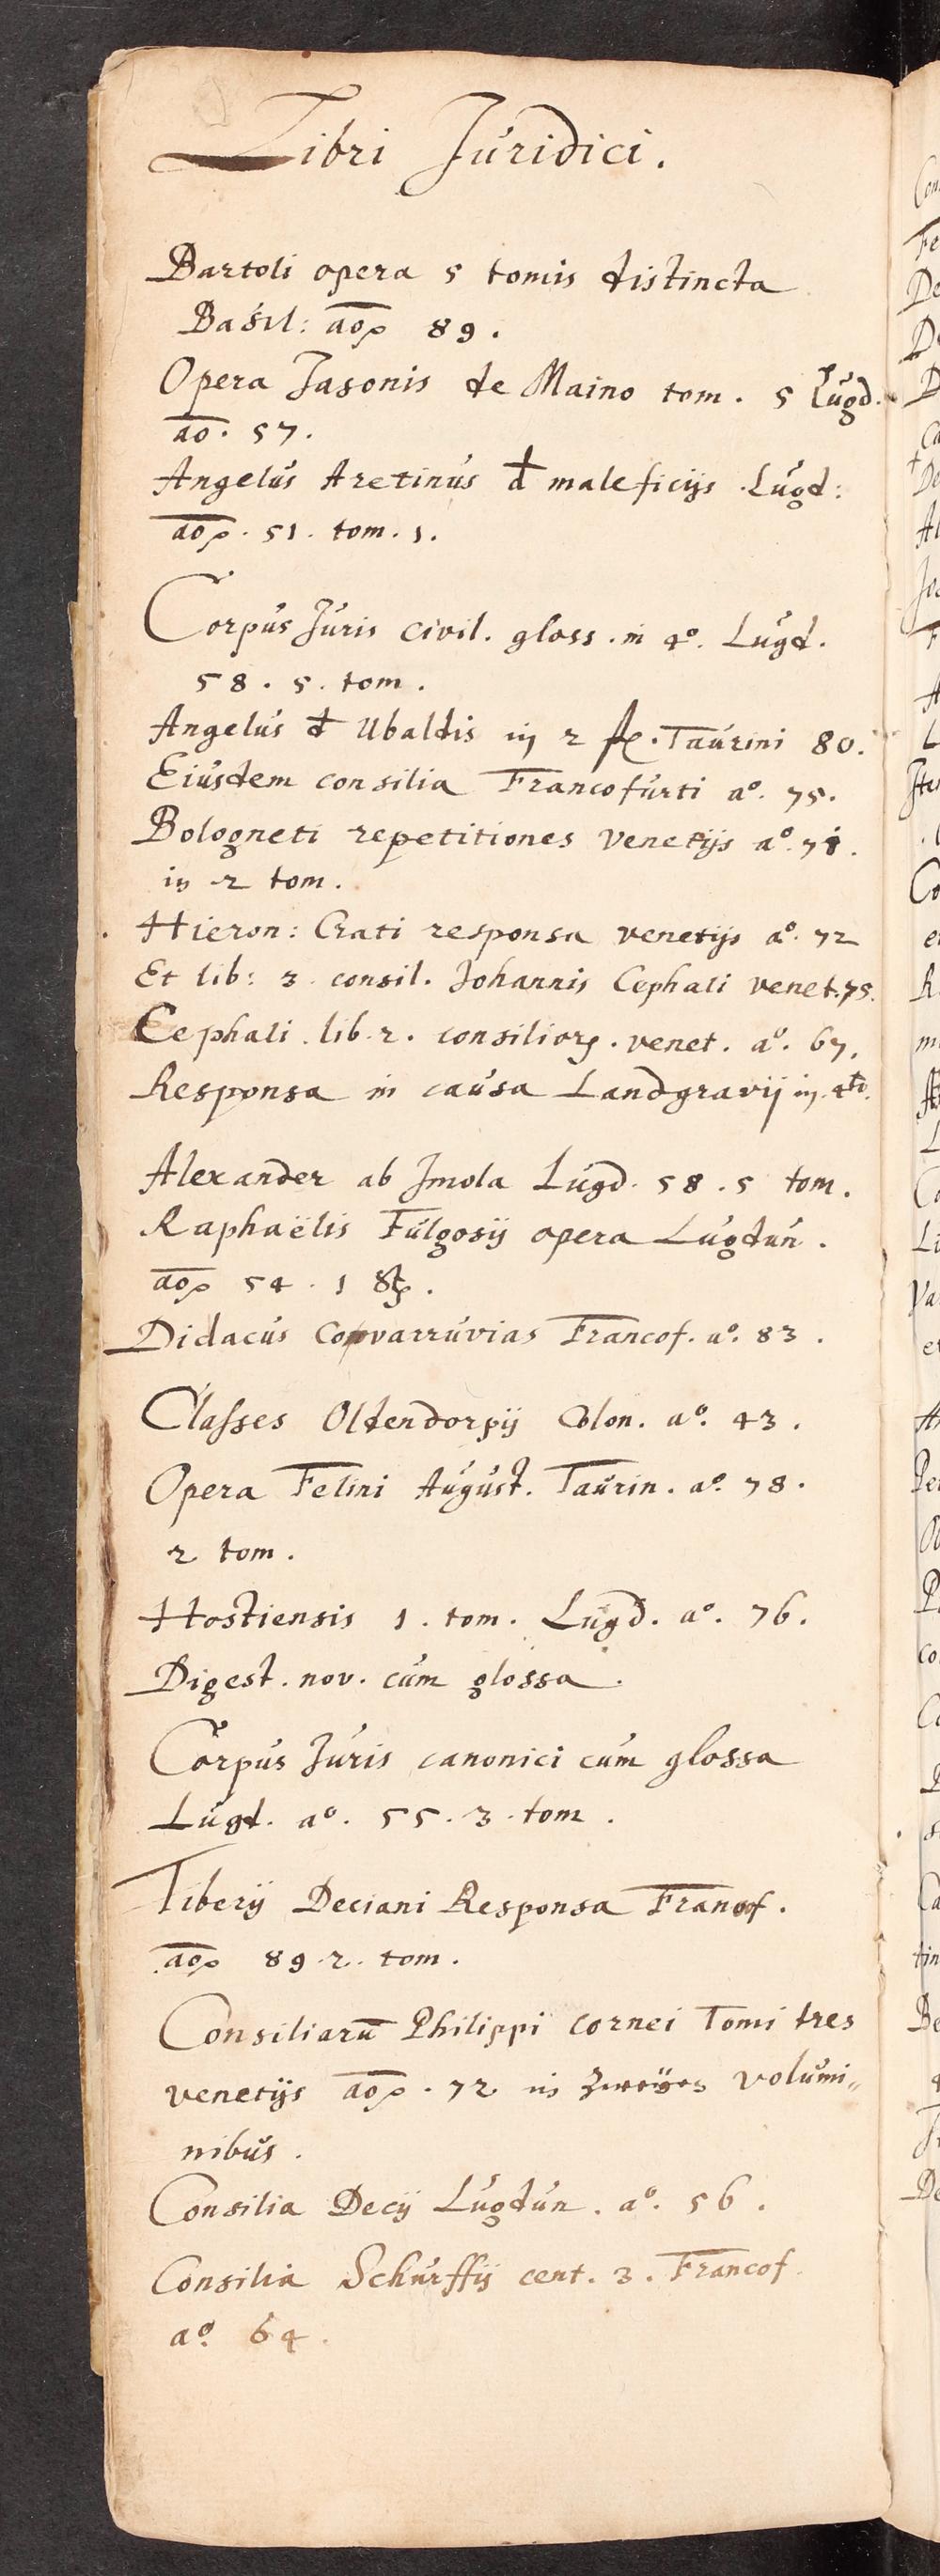 Libri Juridici.
Bartoli opera 5 tomis distincta
Basil: ao 89.
Opera Jasonis de Maino tom. 5 Lugd.
ao. 57.
Angelus Aretinus đ maleficijs Lugd:
ao. 51. tom. 1.
Corpus Juris civil. gloss. in 4º. Lugd.
58. 5. tom.
Angelus đ Ubaldis in 2 Taurini 80.
Eiusdem consilia Francofurti aº. 75.
Bologneti repetitiones Venetijs aº.
in 2 tom.
Hieron: Grati responsa venetijs aº. 72
Et lib: 3. consil. Johannis Cephali venet. 75.
Cephali lib. 2. consilior. venet. aº. 67.
Responsa in causa Landgravij in 4to.
Alexander ab Imola Lugd. 58. 5 tom.
Raphaëlis Fulgosij opera Lugdun.
ao 54. 1
Didacus Covarruvias Francof. aº. 83.
Classes Oldendorpij Colon. aº. 43.
Opera Felini August. Taurin. aº. 78.
2 tom.
Hostiensis 1. tom. Lugd. aº. 76.
Digest. nov. cum glossa.
Corpus Juris canonici cum glossa
Lugd. aº. 55. 3. tom.
Tiberij Deciani Responsa Francof.
ao 89 2. tom.
Consiliarū Philippi cornei Tomi tres
venetijs ao. 72 in volumi„
nibus.
Consilia Decij Lugdun. aº. 56.
Consilia Schurffij cent. 3. Francof.
aº. 64.